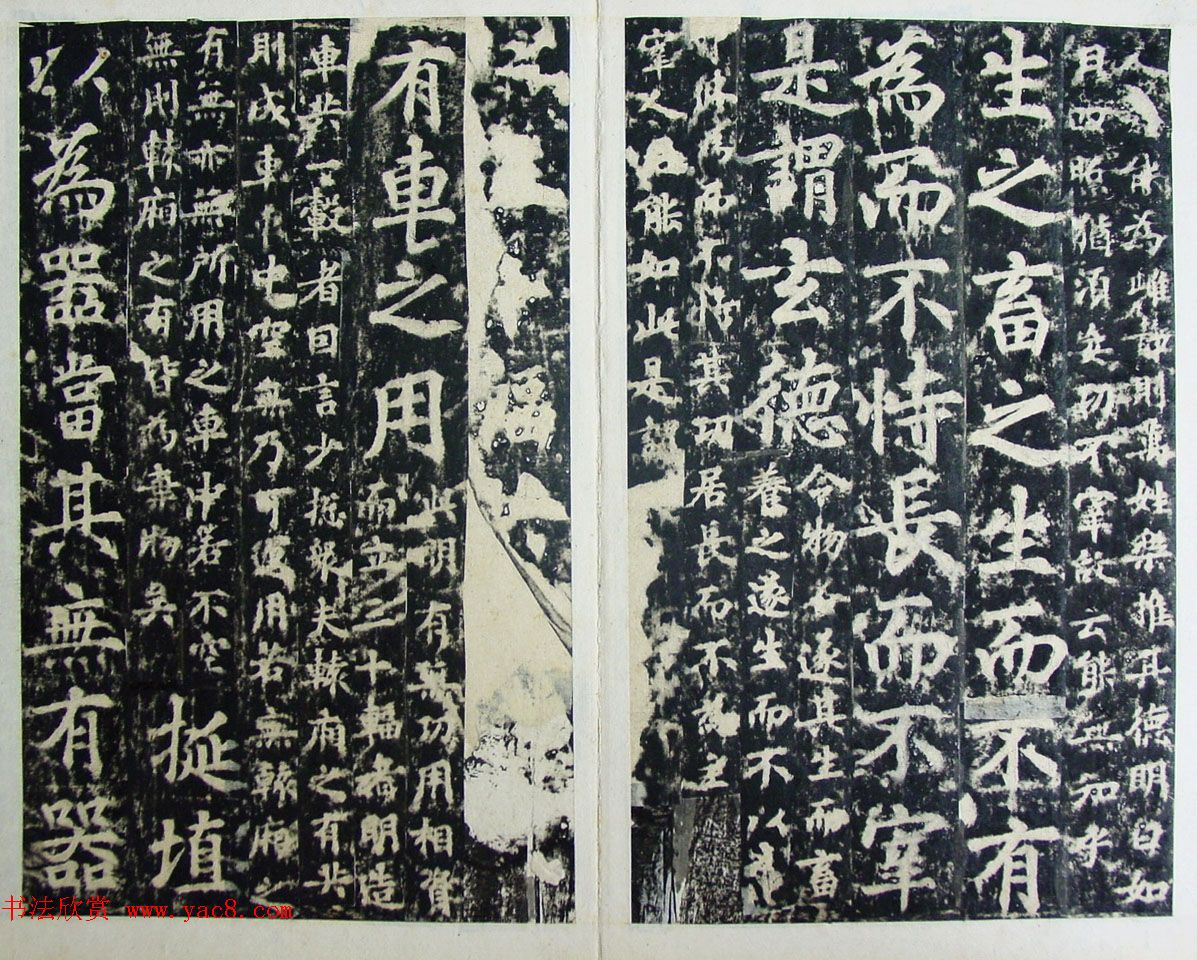 為雌静則萬姓樂推其德明白如
日四照猶須忘功不宰故云能無知乎
生之畜之生而不有
為而不恃長而不宰
是謂玄德
令物各遂其生而畜
養之遂生而不以為
為而不恃其功居長而不為主
宰人能如此是
有車之用
此明有無功用相資
而立三十輻者明造
車共一轂者因言少揔衆夫轅廂之有共
則成車車中空無乃可運用若無轅廂之
有無亦無所用之車中若不空
無則轅廂之有皆為棄物矣
挻埴
以為器當其無有器
书法欣赏 www.yac8.com